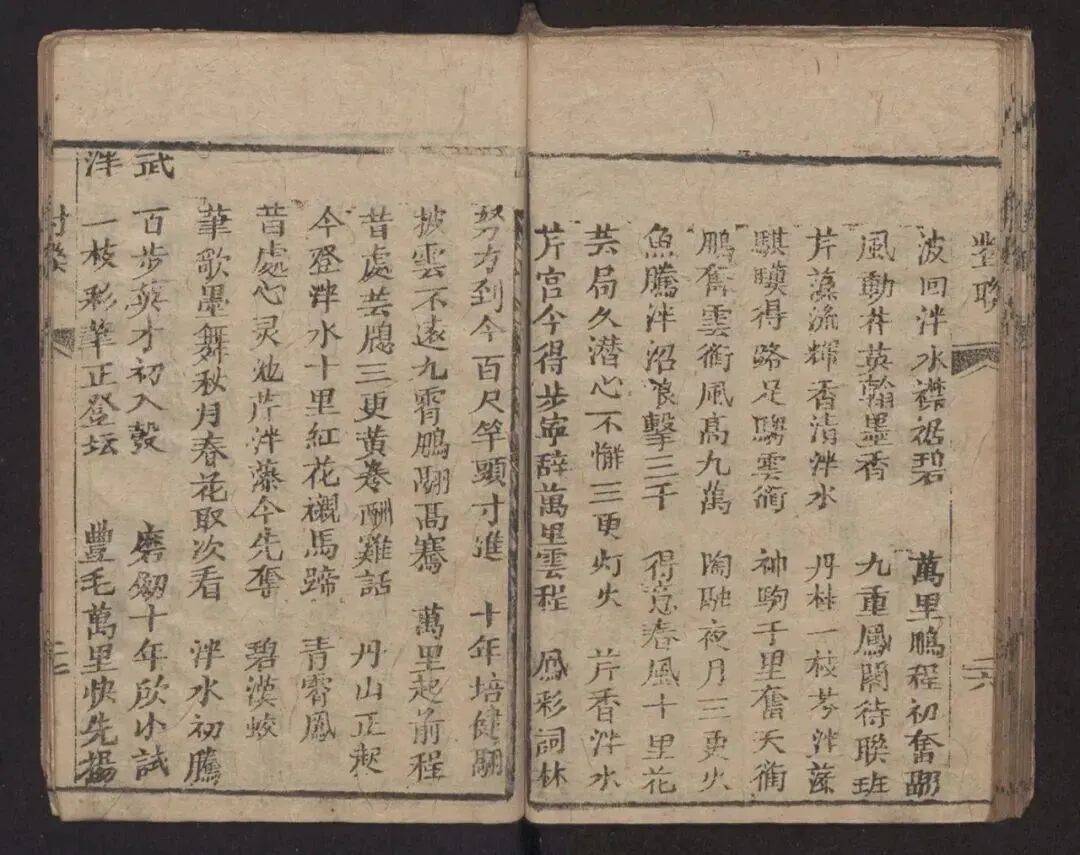 對聯
波回泮水襟裾碧　萬里鵬程初奮翮
風動芹英翰墨香　九重鳳闕待聯班
芹藻流輝香清泮水　丹林一枝芩泮藻
騏驥得路足騁雲衢　神駒千里奮天衢
鵬奮雲衢風高九萬　陶融夜月三更火
魚騰泮沼浪擊三千　得意春風十里花
芸局久潜心不懈三更灯火　芹香泮水
芹宫今得步寧辞萬里雲程　鳳彩詞林
二六
努力到今百尺竿頭寸進　十年培健翮
披雲不遠九霄鵬翮髙騫　萬里起前程
昔處芸牕三更黄卷酬雞話　丹山正起
今登泮水十里紅花襯馬蹄　青霄鳳
昔處心灵池芹泮藻今先奪　碧漢蛟
筆歌墨舞秋月春花取次看　泮水初騰
武　百步英才初入彀　磨劔十年欣小試
泮　一枝彩筆正登坛　豐毛萬里快先揚